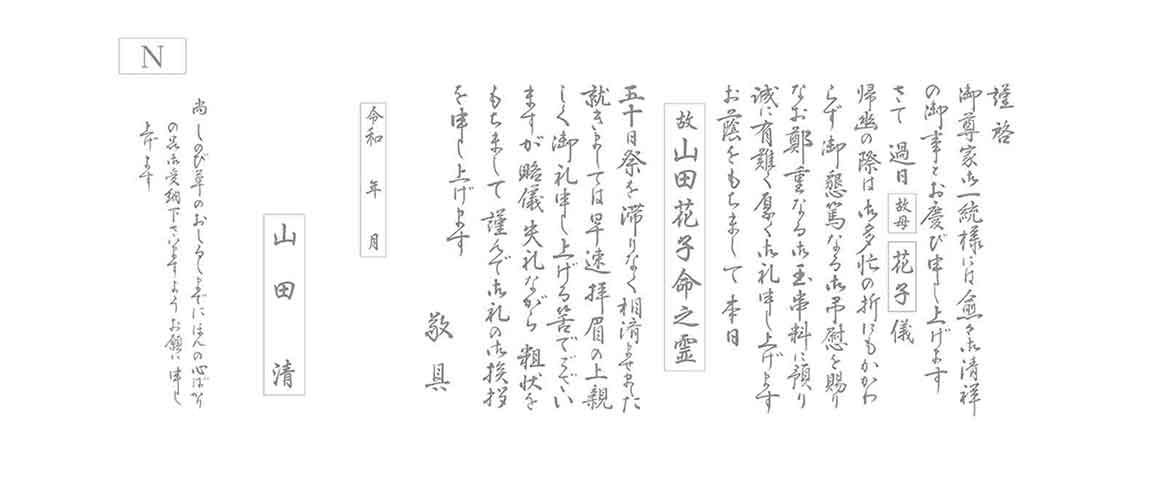 謹啓
御尊家御一統様には愈々御清祥
の御事とお慶び申し上げます
さて 過日 故母 花子 儀
帰幽の際は御多忙の折にもかかわ
らず御懇篤なる御弔慰を賜り
なお鄭重なる御玉串料に預り
誠に有難く厚く御礼申し上げます
お蔭をもちまして本日
故 山田花子命之霊
五十日祭を滞りなく相済ませました
就きましては早速拝眉の上親
しく御礼申し上げる筈でござい
ますが略儀失礼ながら粗状を
もちまして謹んで御礼の御挨拶
を申し上げます
敬具
令和 年 月
山田 清
尚 しのび草のおしるしまでにほんの心ばかり
の品御受納下さいますようお願い申し
上げます
N